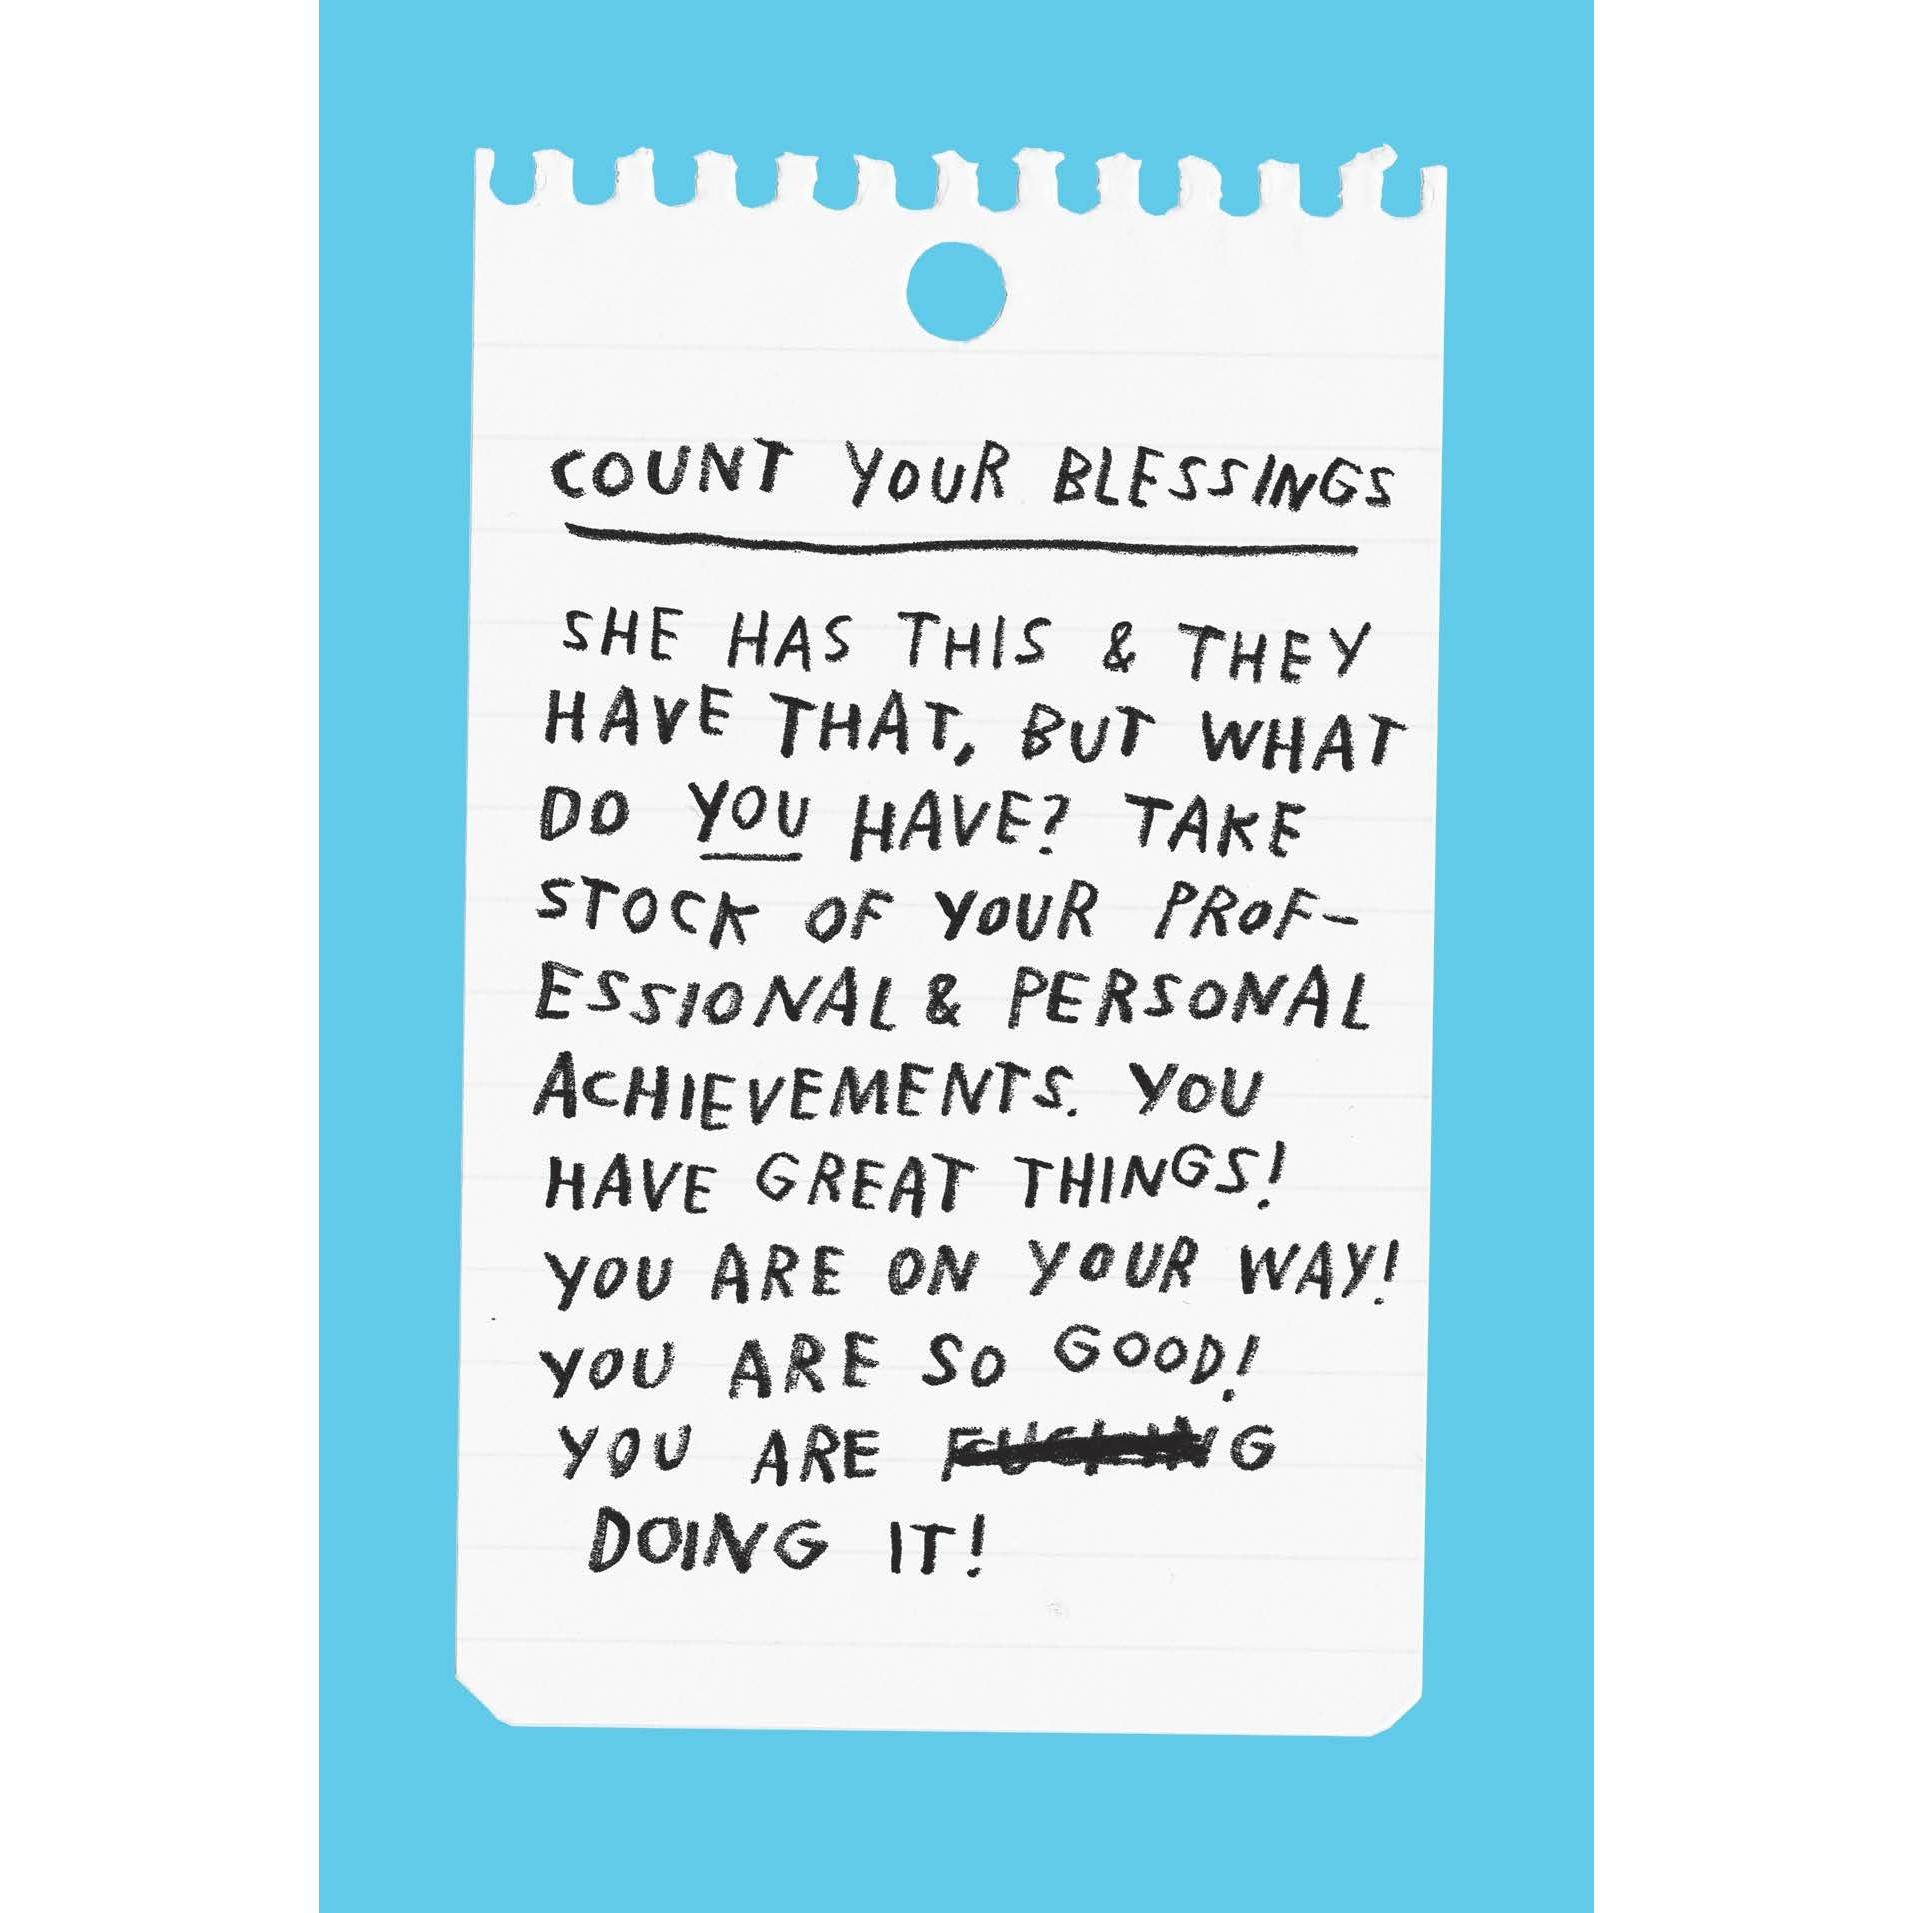 COUNT YOUR BLESSINGS
SHE HAS THIS & THEY
HAVE THAT, BUT WHAT
DO YOU HAVE? TAKE
STOCK OF YOUR PROF-
ESSIONAL & PERSONAL
ACHIEVEMENTS. YOU
HAVE GREAT THINGS!
YOU ARE ON YOUR WAY!
YOU ARE SO GOOD!
YOU ARE FUCKING
DOING IT!